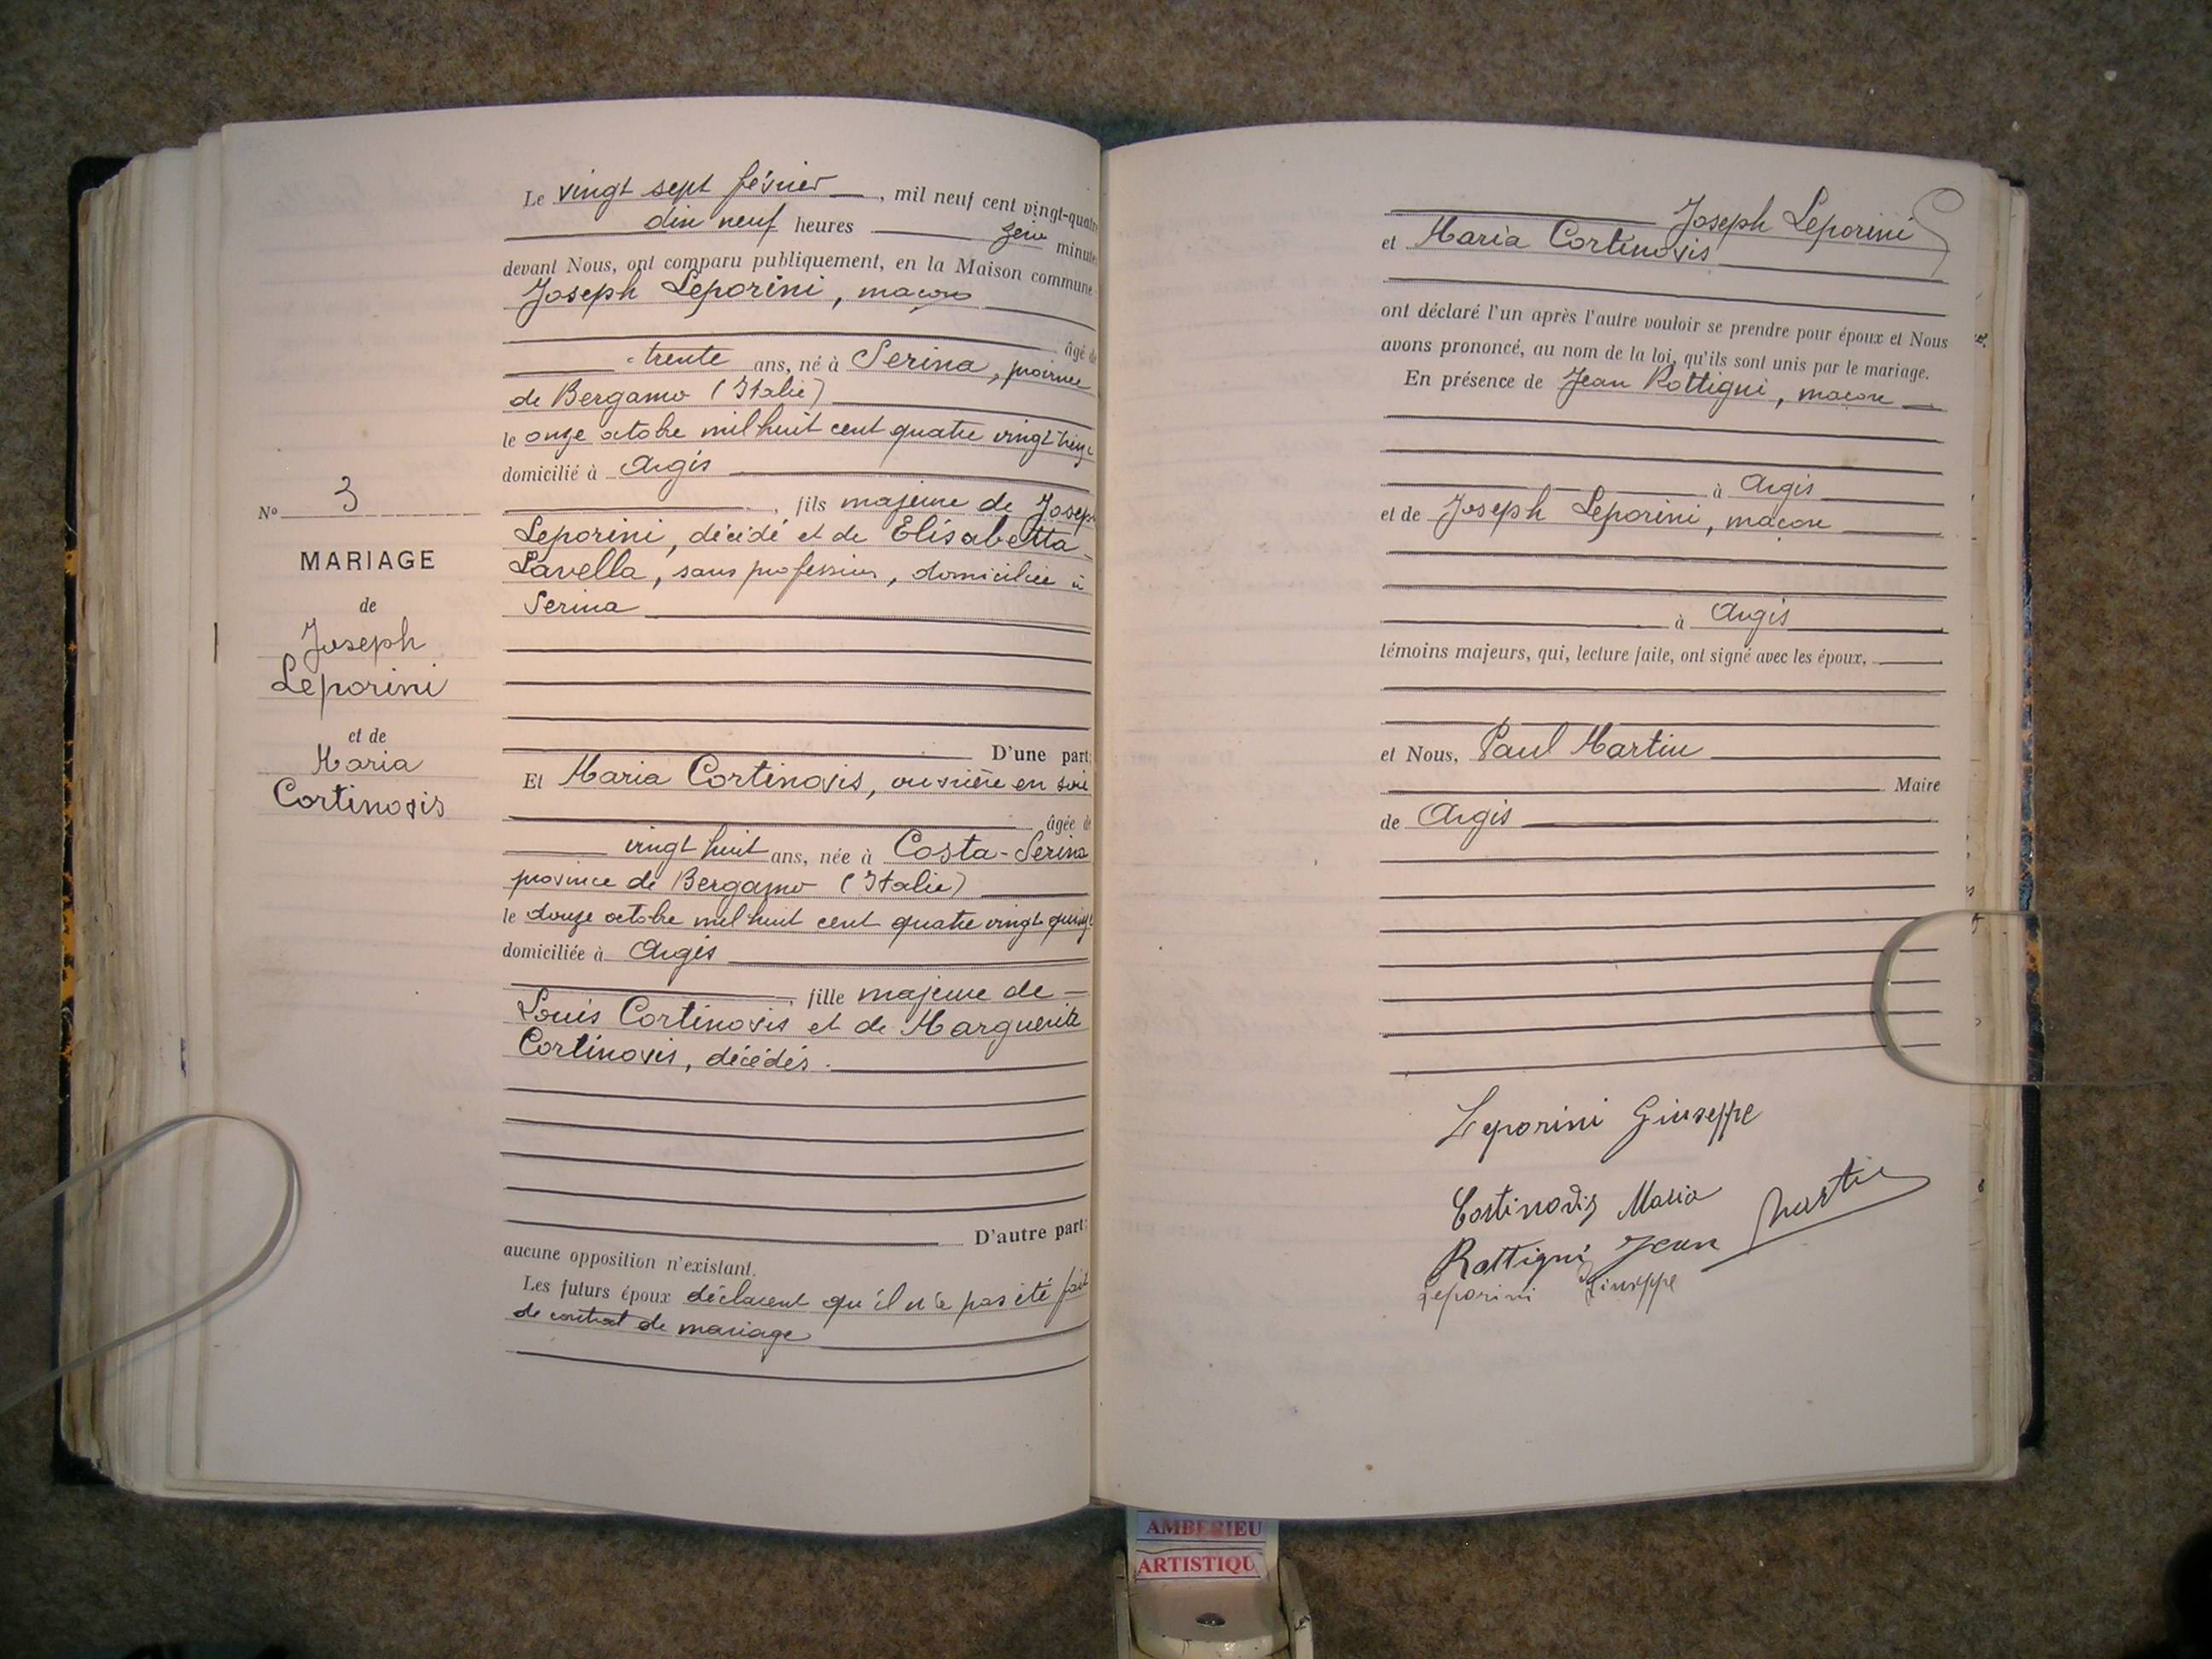 Le vingt sept février, mil neuf cent vingt-quatre
dix neuf heures zéro minutes
devant Nous, ont comparu publiquement, en la Maison commune
Joseph Leporini, maçon
âgé de
trente ans, né à Serina, province
de Bergamo (Italie)
le onze octobre mil huit cent quatre vingt treize
domicilié à Argis
, fils majeur de Joseph
Leporini, décédé et de Elisabetta
Lavella, sans profession, domiciliée à
Serina
N° 3
MARIAGE
de
Joseph
Leporini
et de
Maria
Cortinovis
D'une part;
Et Maria Cortinovis, ouvrière en soie
âgée de
vingt huit ans, née à Costa-Serina
province de Bergamo (Italie)
le douze octobre mil huit cent quatre vingt quinze
domiciliée à Argis
, fille majeure de
Louis Cortinovis et de Marguerite
Cortinovis, décédés.
D'autre part;
aucune opposition n'existant.
Les futurs époux déclarent qu'il n'a pas été fait
de contrat de mariage
Joseph Leporini
et Maria Cortinovis
ont déclaré l'un après l'autre vouloir se prendre pour époux et Nous
avons prononcé, au nom de la loi, qu'ils sont unis par le mariage.
En présence de Jean Rottigni, maçon
à Argis
et de Joseph Leporini, maçon
à Argis
témoins majeurs, qui, lecture faite, ont signé avec les époux,
et Nous, Paul Martin
Maire
de Argis
Leporini Giuseppe
Cortinovis Maria
Martin
Rottigni Jean
Leporini Giuseppe
AMBERIEU
ARTISTIQU